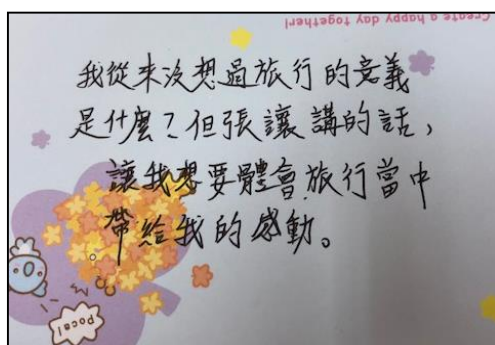 Create a happy day together!
我從來沒想過旅行的意義
是什麼？但張讓講的話，
讓我想要體會旅行當中
帶給我的感動。
Pocel